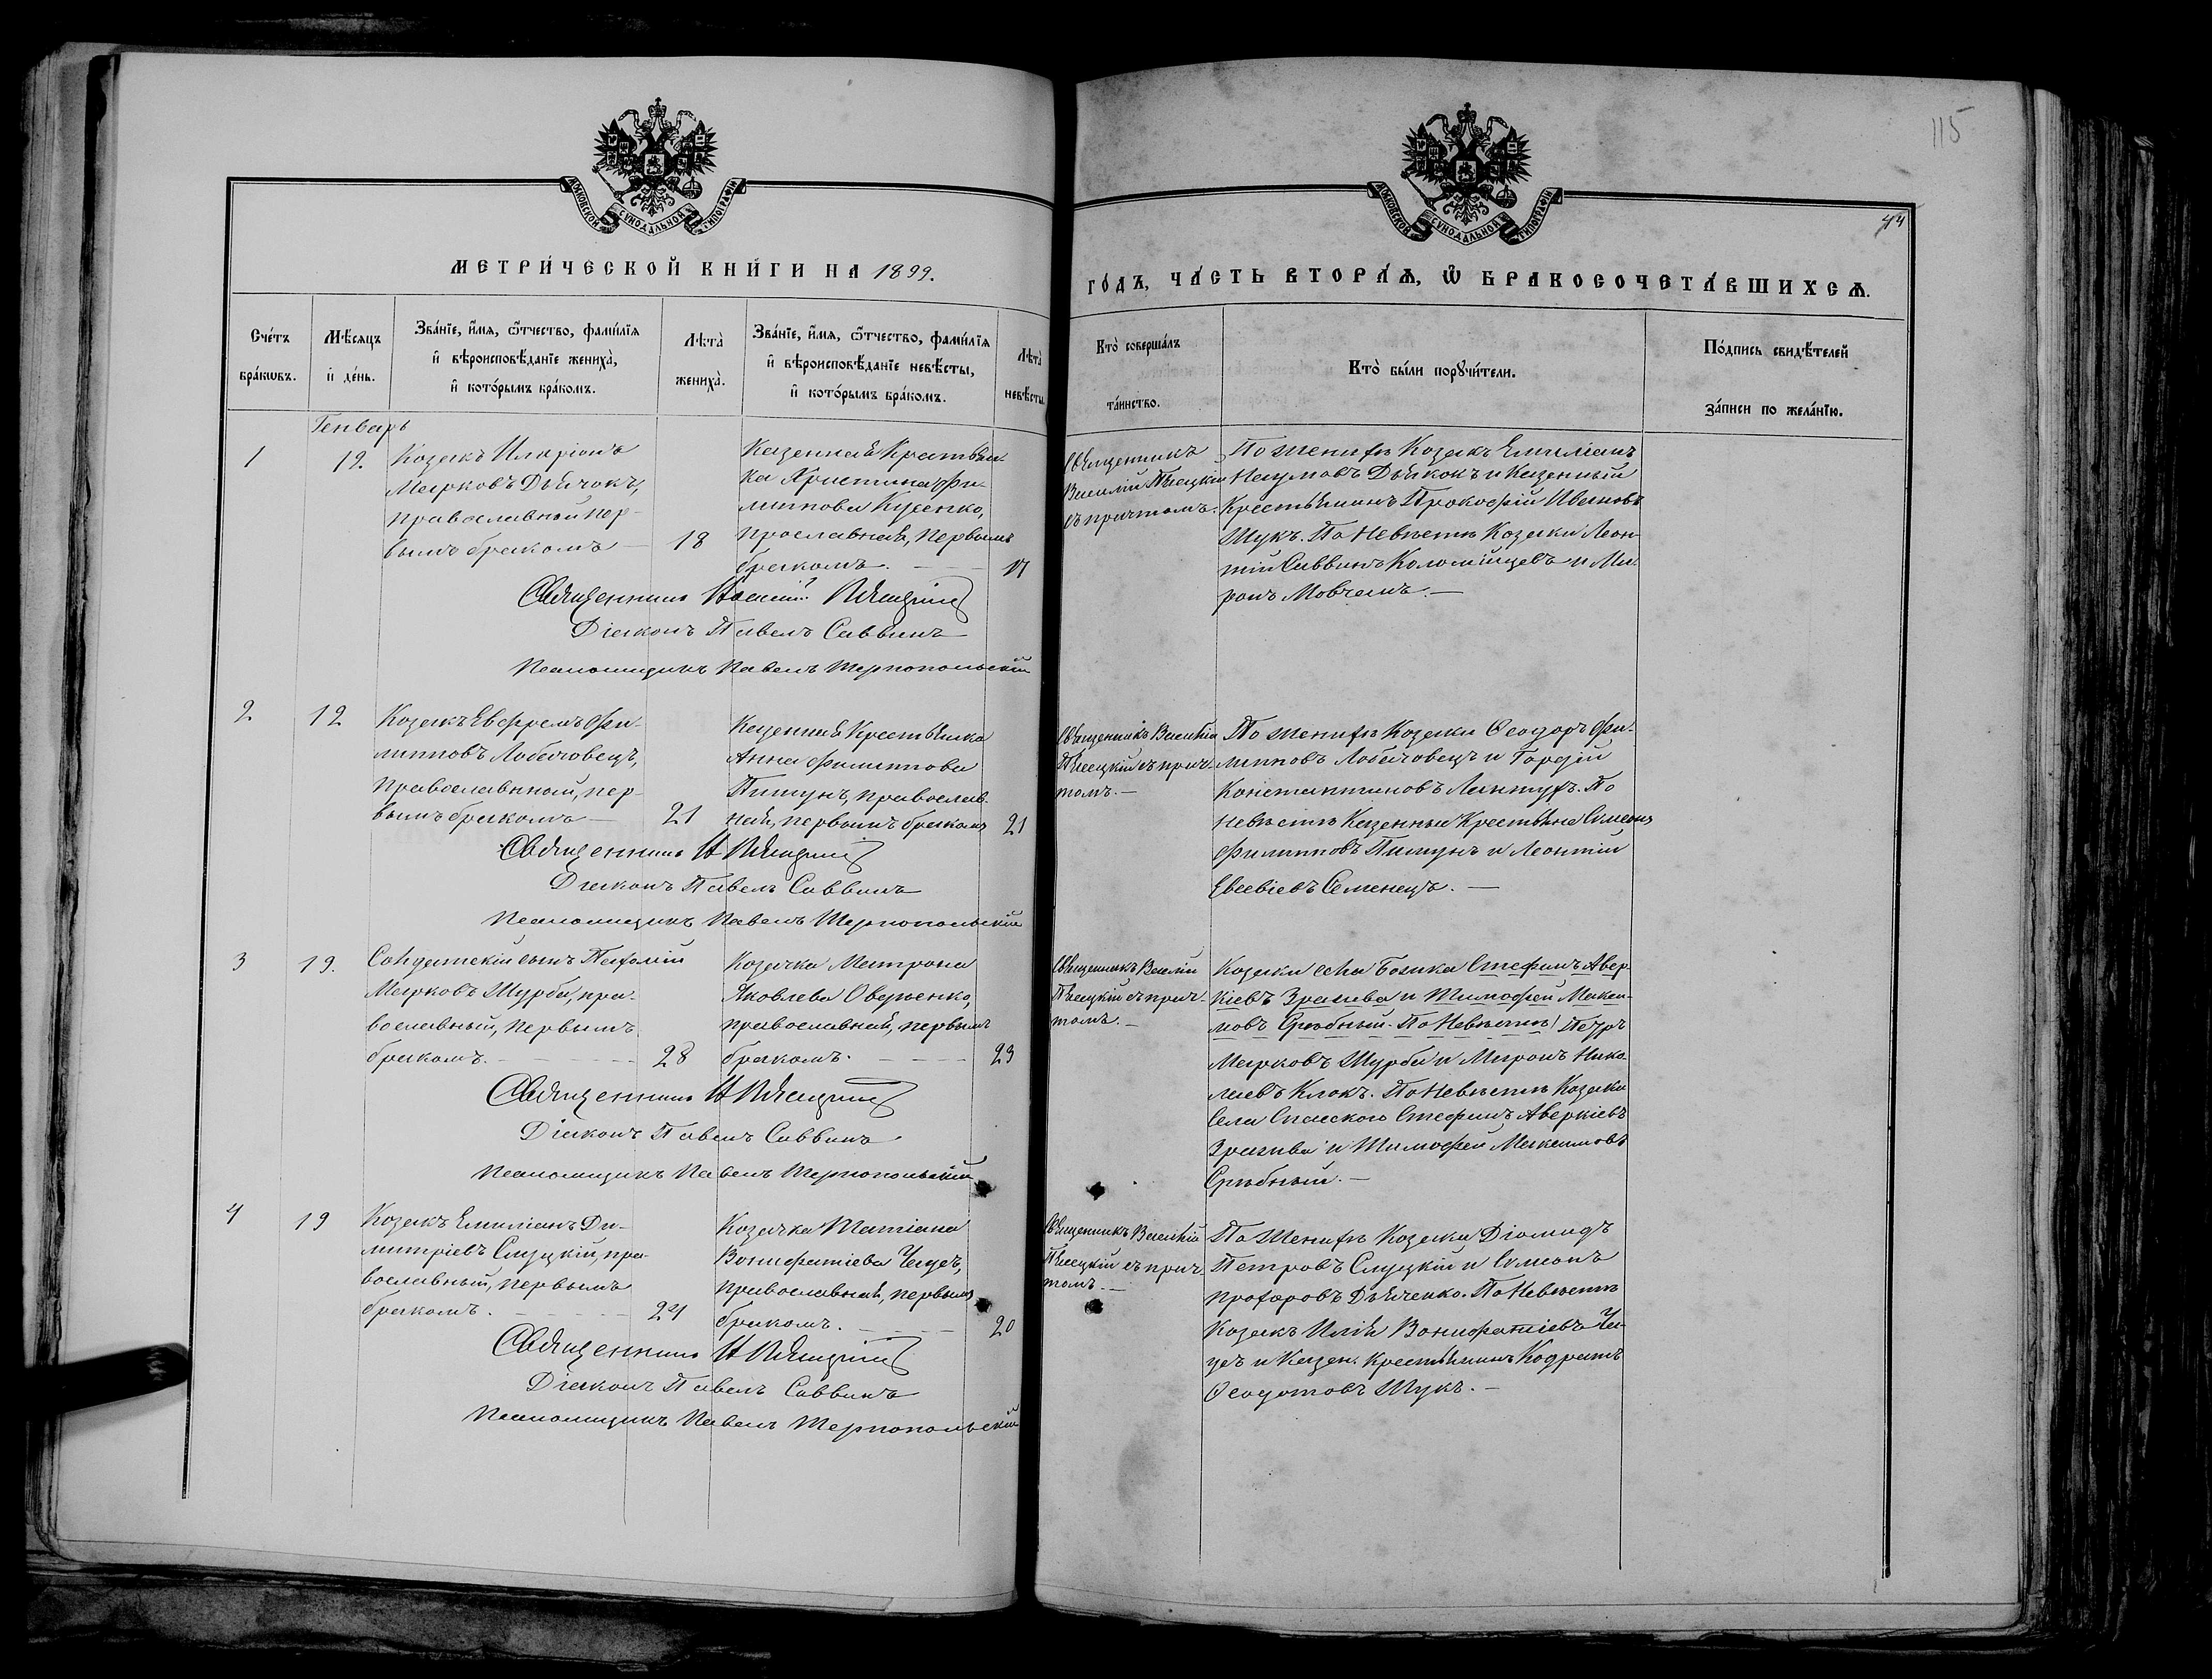 115
МОСКОВСКОЙ СѴНОДАЛЬНОЙ ТИПОГРАФІИ
МОСКОВСКОЙ СѴНОДАЛЬНОЙ ТИПОГРАФІИ
44
МЕТРИ́ЧЕСКОЙ КНИ́ГИ НА 1899.
ГО́ДЪ, ЧА́СТЬ ВТОРА́Ѧ, Ѽ БРАКОСОЧЕТА́ВШИХСѦ.
Сче́тъ бра́кѡвъ.
Мѣ́сяцъ и҆ де́нь.
Зва́нїе, и҆́мя, ѻ҆́тчество, фами́лїя
и҆ вѣроисповѣ́данїе жениха̀,
и҆ кото́рымъ бра́комъ.
Лѣта̀ жениха̀.
Зва́нїе, и҆́мя, ѻ҆́тчество, фами́лїя
и҆ вѣроисповѣ́данїе невѣ́сты,
и҆ кото́рымъ бра́комъ.
Лѣта̀ невѣ́сты
Кто̀ соверша́лъ та́инство.
Кто̀ бы́ли порꙋчи́тели.
По́дпись свидѣ́телей за́писи по жела́нїю.
Генварь
1
12.
Козакъ Иларіонъ
Марковъ Дьячокъ,
православный пер-
вымъ бракомъ —
18
Казенная Крестьян-
ка Христина Фи-
липпова Куценко,
прославная, первымъ
бракомъ. —
17
Священникъ
Василій Пясецкій
съ причтомъ.
По женихѣ Козакъ Емиліанъ
Наумовъ Дьячокъ и Казенный
Крестьянинъ Прокофій Ивановъ
Шукъ. По Невѣстѣ Козаки Леон-
тій Саввинъ Коломійцевъ и Ми-
ронъ Мовчанъ. —
Священникъ Василій Пясецкій
Діаконъ Павелъ Саввинъ
Псаломщикъ Павелъ Тернопольскій
2
12
Козакъ Евфремъ Фи-
липповъ Лобачовецъ,
Православный, пер-
вымъ бракомъ —
21
Казенная Крестьянка
Анна Филиппова
Пишунъ, православ-
ная, первымъ бракомъ
21
Священникъ Василій
Пясецкій съ прич-
томъ. —
По женихѣ Козаки Ѳеодоръ Фи-
липповъ Лобачовецъ и Гордій
Константиновъ Лантухъ. По
Невѣстѣ Казенные Крестьяне Симеонъ
Филипповъ Пишунъ и Леонтій
Евсевіевъ Семенецъ. —
Священникъ В Пясецкій
Діаконъ Павелъ Саввинъ
Псаломщикъ Павелъ Тернопольскій
3
19.
Солдатскій сынъ Пафомій
Марковъ Шурба, пра-
вославный, первымъ
бракомъ. —
28
Козачка Матрона
Яковлева Оверьенко,
православная, первымъ
бракомъ. —
23
Священникъ Василій
Пясецкій съ прич-
томъ. —
Козаки села Стефанъ Авер-
кіевъ Зражва и Тимофей Макси-
мовъ Срѣбный. По Невѣстѣ Петръ
Марковъ Шурба и Миронъ Нико-
лаевъ Клокъ. По Невѣстѣ Козаки
Села Спасского Стефанъ Аверкіевъ
Зражва и Тимофей Максимовъ
Срѣбный. —
Священникъ В Пясецкій
Діаконъ Павелъ Саввинъ
Псаломщикъ Павелъ Тернопольскій
4
19
Козакъ Емиліанъ Ди-
митріевъ Слуцкій, пра-
вославный, первымъ
бракомъ. —
24
Козачка Татіана
Вонифатіева Чацъ,
православная, первымъ
бракомъ. —
20
Священникъ Василій
Пясецкій съ прич-
томъ. —
По Женихѣ Козаки Діомидъ
Петровъ Слуцкій и Симеонъ
Прохоровъ Дьяченко. По Невѣстѣ
Козакъ Илія Вонифатіевъ Ча-
цъ и Казен. Крестьянинъ Кодратъ
Ѳеодотовъ Шукъ. —
Священникъ В Пясецкій
Діаконъ Павелъ Саввинъ
Псаломщикъ Павелъ Тернопольскій